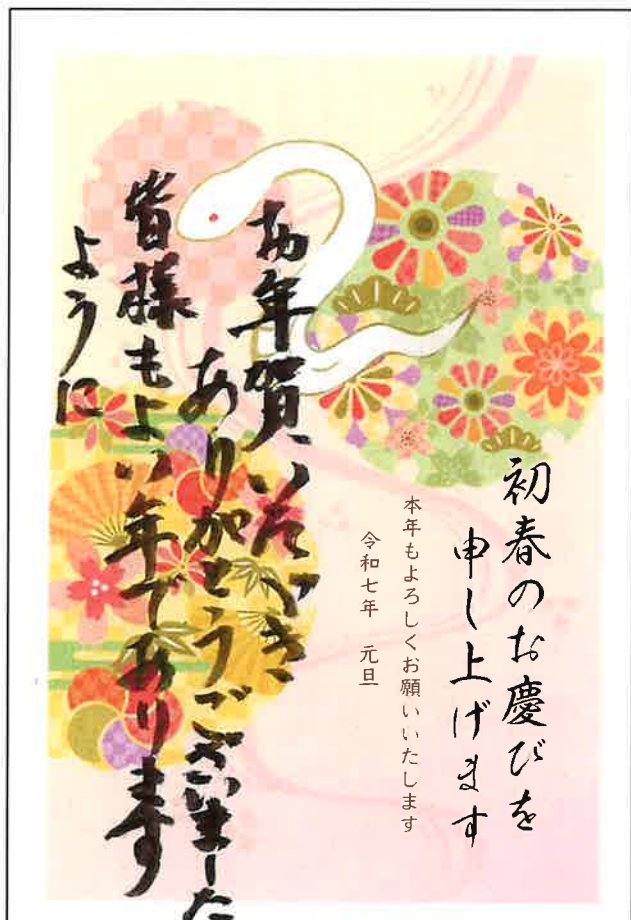 初春のお慶びを
申し上げます
本年もよろしくお願いいたします
令和七年 元旦
お年賀いただき
ありがとうございました
皆様もよい年であります
ように